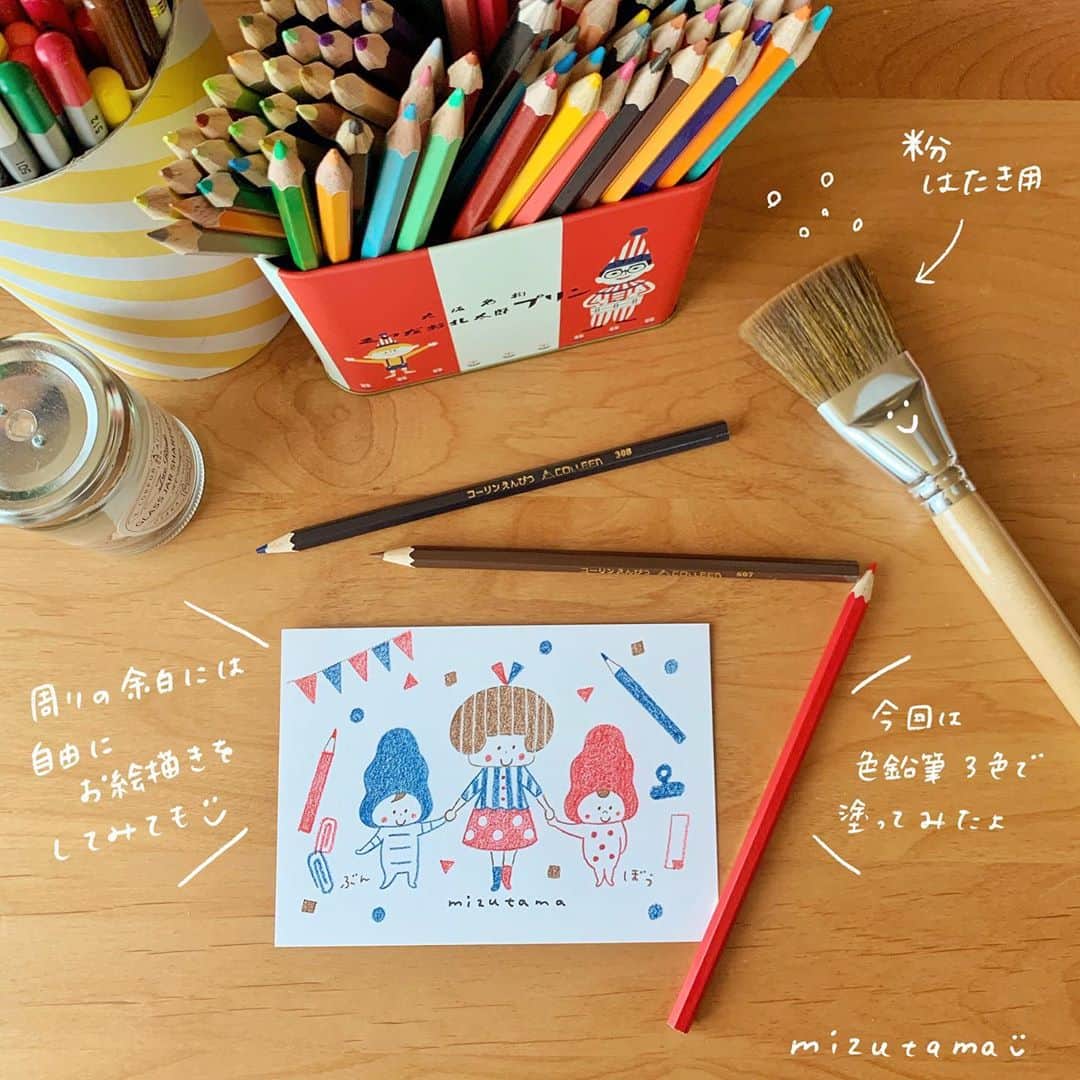 粉
はたき用
大阪名物
くいだおれ太郎プリン
コーリンえんぴつ COLLEEN 308
コーリンえんぴつ COLLEEN 607
GLASS JAR SHAKER
512
501
周りの余白には
自由に
お絵描きを
してみても
今回は
色鉛筆3色で
塗ってみたよ
ぶん
ぼう
mizutama
mizutama